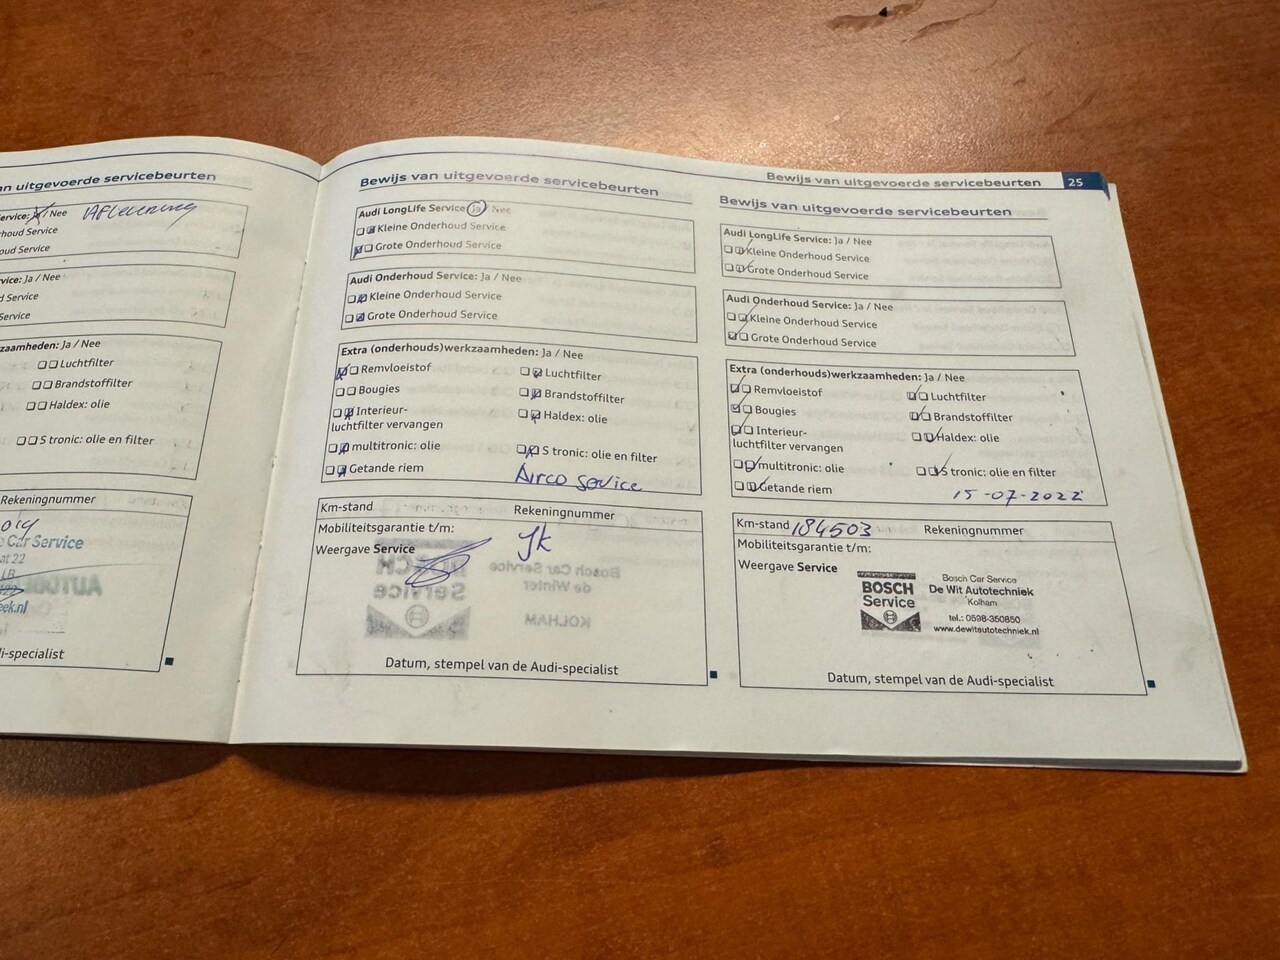 an uitgevoerde servicebeurten
ervice: Ja / Nee Aflevering
houd Service
oud Service
vice: Ja / Nee
d Service
Service
zaamheden: Ja / Nee
Luchtfilter
Brandstoffilter
Haldex: olie
S tronic: olie en filter
Rekeningnummer
Car Service
at 22
eek.nl
i-specialist
Bewijs van uitgevoerde servicebeurten
Audi LongLife Service: Ja / Nee
Kleine Onderhoud Service
Grote Onderhoud Service
Audi Onderhoud Service: Ja / Nee
Kleine Onderhoud Service
Grote Onderhoud Service
Extra (onderhouds)werkzaamheden: Ja / Nee
Remvloeistof Luchtfilter
Bougies Brandstoffilter
Interieur- Haldex: olie
luchtfilter vervangen
multitronic: olie S tronic: olie en filter
Getande riem Airco service
Km-stand Rekeningnummer
Mobiliteitsgarantie t/m:
Weergave Service
Datum, stempel van de Audi-specialist
Bewijs van uitgevoerde servicebeurten 25
Bewijs van uitgevoerde servicebeurten
Audi LongLife Service: Ja / Nee
Kleine Onderhoud Service
Grote Onderhoud Service
Audi Onderhoud Service: Ja / Nee
Kleine Onderhoud Service
Grote Onderhoud Service
Extra (onderhouds)werkzaamheden: Ja / Nee
Remvloeistof Luchtfilter
Bougies Brandstoffilter
Interieur- Haldex: olie
luchtfilter vervangen
multitronic: olie S tronic: olie en filter
Getande riem 15-07-2022
Km-stand 184503 Rekeningnummer
Mobiliteitsgarantie t/m:
Weergave Service
BOSCH
Service
Bosch Car Service
De Wit Autotechniek
Kolham
tel.: 0598-350850
www.dewitautotechniek.nl
Datum, stempel van de Audi-specialist